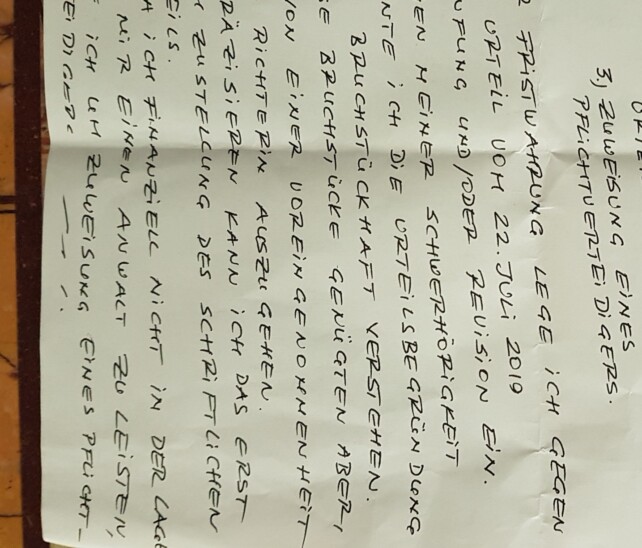 3.) ZUWEISUNG EINES
PFLICHTVERTEIDIGERS.
FRISTWAHRUNG LEGE ICH GEGEN
URTEIL VOM 22. JULI 2019
UFUNG UND/ODER REVISION EIN.
EN MEINER SCHWERHÖRIGKEIT
NTE ICH DIE URTEILSBEGRÜNDUNG
BRUCHSTÜCKHAFT VERSTEHEN.
SE BRUCHSTÜCKE GENÜGTEN ABER,
ON EINER VOREINGENOMMENHEIT
RICHTERIN AUSZUGEHEN.
RÄZISIEREN KANN ICH DAS ERST
ZUSTELLUNG DES SCHRIFTLICHEN
EILS.
ICH FINANZIELL NICHT IN DER LAGE
MIR EINEN ANWALT ZU LEISTEN,
ICH UM ZUWEISUNG EINES PFLICHT-
EIDIGERS